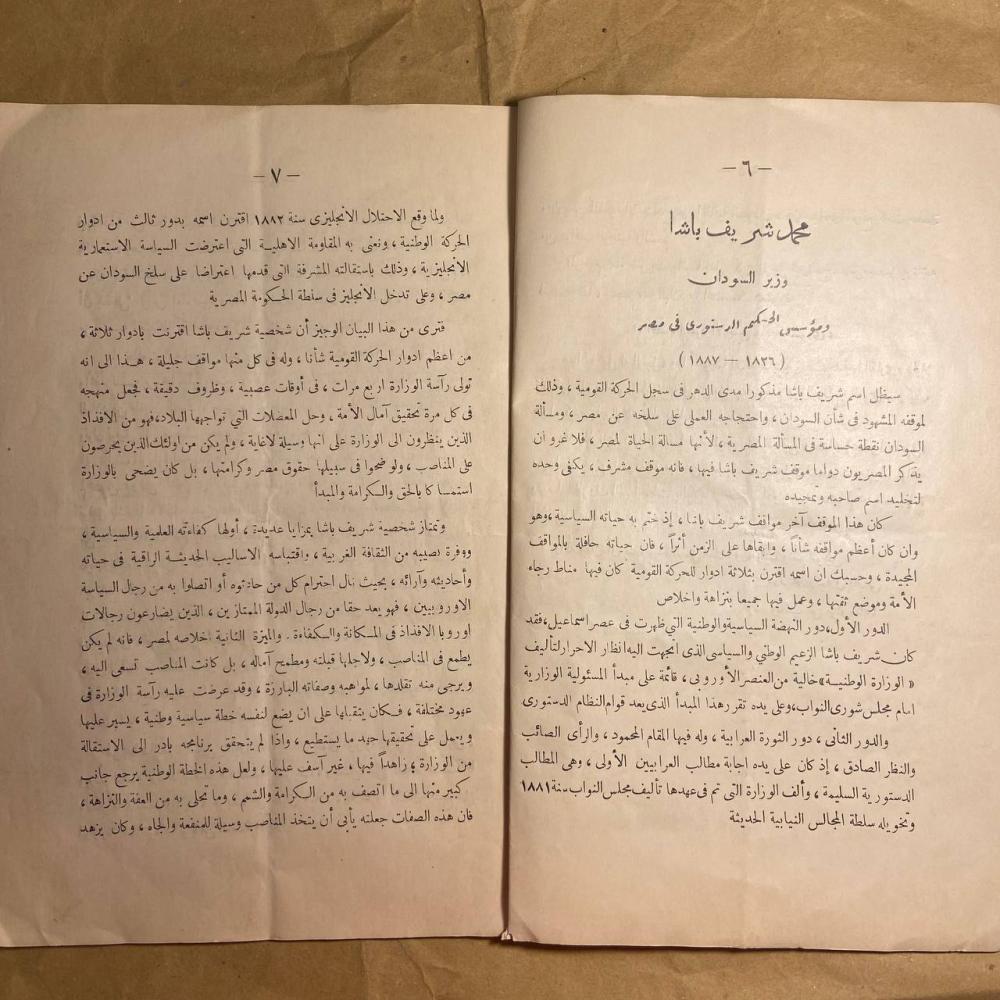 — ٦ —
محمد شريف باشا
وزير السودان
ومؤسس الحكم الدستورى فى مصر
( ١٨٢٦ — ١٨٨٧ )
سيظل اسم شريف باشا مذكورا مدى الدهر فى سجل الحركة القومية ، وذلك
لموقفه المشهود فى شأن السودان ، واحتجاجه العملى على سلخه عن مصر ، ومسألة
السودان نقطة حساسة فى المسألة المصرية ، لأنها مسالة الحياة لمصر ، فلا غرو ان
يذكر المصريون دواما موقف شريف باشا فيها ، فانه موقف مشرف ، يكفى وحده
لتخليد اسم صاحبه وتمجيده
كان هذا الموقف آخر مواقف شريف باشا ، إذ ختم به حياته السياسية ، وهو
وان كان أعظم مواقفه شأنا ، وابقاها على الزمن أثراً ، فان حياته حافلة بالمواقف
المجيدة ، وحسبك ان اسمه اقترن بثلاثة ادوار للحركة القومية كان فيها مناط رجاء
الأمة وموضع ثقتها ، وعمل فيها جميعا بنزاهة واخلاص
الدور الأول ، دور النهضة السياسية والوطنية التى ظهرت فى عصر اسماعيل ، فقد
كان شريف باشا الزعيم الوطنى والسياسى الذى اتجهت اليه انظار الاحرار لتأليف
« الوزارة الوطنية » خالية من العنصر الأوروبى ، قائمة على مبدأ المسئولية الوزارية
امام مجلس شورى النواب ، وعلى يده تقرر هذا المبدأ الذى يعد قوام النظام الدستورى
والدور الثانى ، دور الثورة العرابية ، وله فيها المقام المحمود ، والرأى الصائب
والنظر الصادق ، إذ كان على يده اجابة مطالب العرابيين الأولى ، وهى المطالب
الدستورية السليمة ، وألف الوزارة التى تم فى عهدها تأليف مجلس النواب سنة ١٨٨١
وتخويله سلطة المجالس النيابية الحديثة
— ٧ —
ولما وقع الاحتلال الانجليزى سنة ١٨٨٢ اقترن اسمه بدور ثالث من ادوار
الحركة الوطنية ، ونعنى به المقاومة الاهلية التى اعترضت السياسة الاستعمارية
الانجليزية ، وذلك باستقالته المشرفة التى قدمها اعتراضا على سلخ السودان عن
مصر ، وعلى تدخل الانجليز فى سلطة الحكومة المصرية
فترى من هذا البيان الوجيز أن شخصية شريف باشا اقترنت بادوار ثلاثة ،
من اعظم ادوار الحركة القومية شأنا ، وله فى كل منها مواقف جليلة ، هذا الى انه
تولى رآسة الوزارة اربع مرات ، فى أوقات عصيبة ، وظروف دقيقة ، فجعل منهجه
فى كل مرة تحقيق آمال الأمة ، وحل المعضلات التى تواجهها البلاد ، فهو من الافذاذ
الذين ينظرون الى الوزارة على انها وسيلة لاغاية ، ولم يكن من اولئك الذين يحرصون
على المناصب ، ولو ضحوا فى سبيلها حقوق مصر وكرامتها ، بل كان يضحى بالوزارة
استمساكا بالحق والكرامة والمبدأ
وتمتاز شخصية شريف باشا بمزايا عديدة ، أولها كفاءته العلمية والسياسية ،
ووفرة نصيبه من الثقافة الغربية ، واقتباسه الاساليب الحديثة الراقية فى حياته
وأحاديثه وآرائه ، بحيث نال احترام كل من حادثوه أو اتصلوا به من رجال السياسة
الاوروبيين ، فهو يعد حقا من رجال الدولة الممتازين ، الذين يضارعون رجالات
اوروبا الافذاذ فى المكانة والكفاءة . والميزة الثانية اخلاصه لمصر ، فانه لم يكن
يطمع فى المناصب ، ولا جعلها قبلته ومطمح آماله ، بل كانت المناصب تسعى اليه ،
ويرجى منه تقلدها ، لمواهبه وصفاته البارزة ، وقد عرضت عليه رآسة الوزارة فى
عهود مختلفة ، فكان يتقبلها على ان يضع لنفسه خطة سياسية وطنية ، يسير عليها
ويعمل على تحقيقها جهد ما يستطيع ، واذا لم يتحقق برنامجه بادر الى الاستقالة
من الوزارة ، زاهداً فيها ، غير آسف عليها ، ولعل هذه الخطة الوطنية يرجع جانب
كبير منها الى ما اتصف به من الكرامة والشمم ، وما تحلى به من العفة والنزاهة ،
فان هذه الصفات جعلته يأبى أن يتخذ المناصب وسيلة للمنفعة والجاه ، وكان يزهد